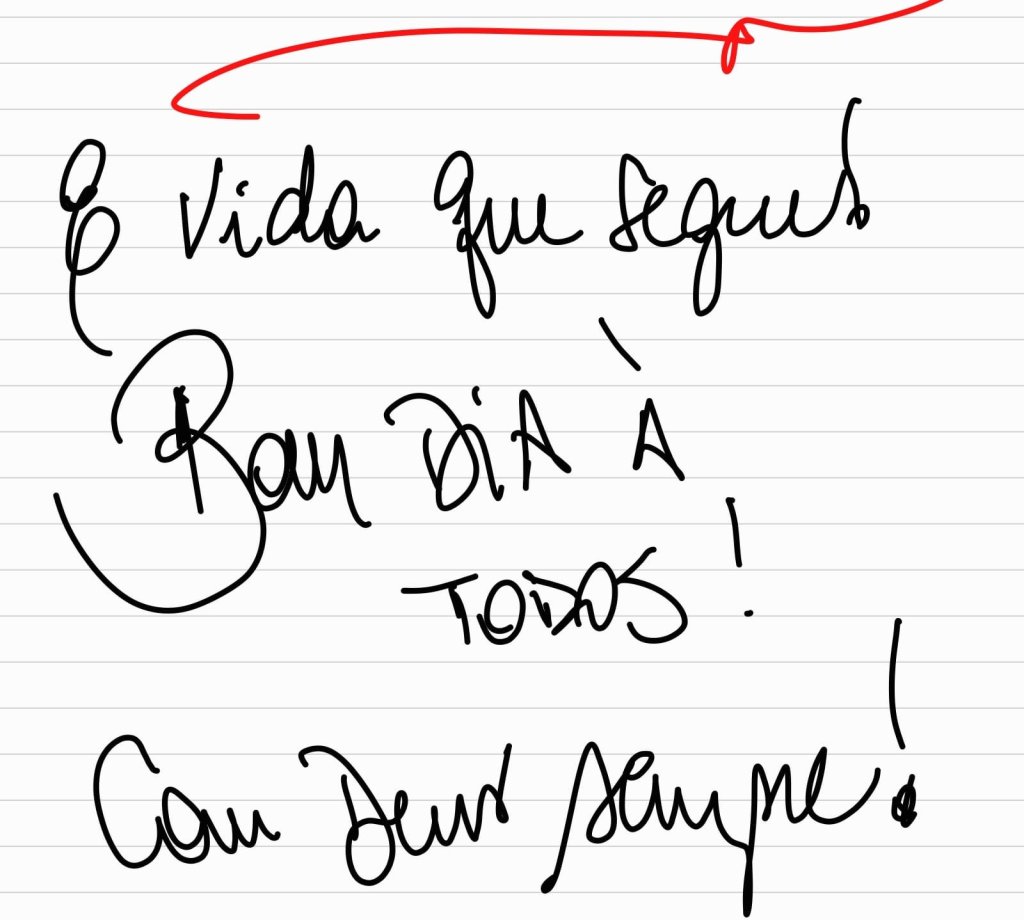 E vida que segue!
Bom DiA À
TODOS!
Com Deus sempre!